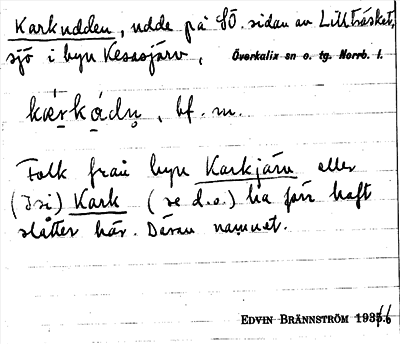 Karkudden, udde på SÖ. sidan av Lillträsket,
sjö i byn Kesasjärv, Överkalix sn o. tg. Norrb. l.
kærkádn̥, bf. m.
Folk från byn Karkjärn eller
( ) Kark (se d.o.) ha förr haft
slåtter här. Därav namnet.
EDVIN BRÄNNSTRÖM 1936.